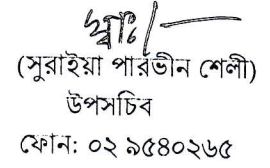 স্বাঃ/—
(সুরাইয়া পারভীন শেলী)
উপসচিব
ফোন: ০২ ৯৫৪০২৬৫